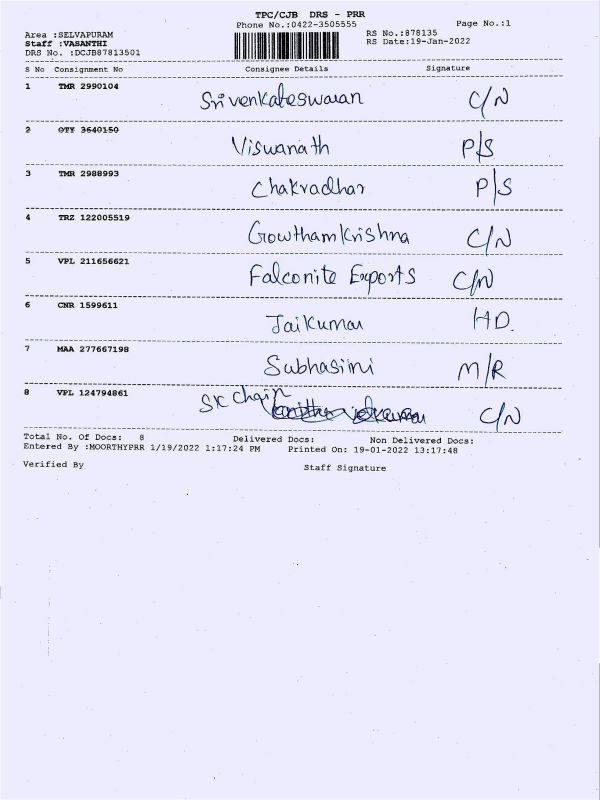 TPC/CJB DRS - PRR
Phone No.:0422-3505555 Page No.:1
Area :SELVAPURAM RS No.:878135
Staff :VASANTHI RS Date:19-Jan-2022
DRS No. :DCJB87813501
S No Consignment No Consignee Details Signature
1 TMR 2990104 Srivenkateswaran C/N
2 OTY 3640150 Viswanath P/S
3 TMR 2988993 Chakradhar P/S
4 TRZ 122005519 Gowtham Krishna C/N
5 VPL 211656621 Falconite Exports C/N
6 CNR 1599611 Jaikumar HD.
7 MAA 277667198 Subhasini M/R
8 VPL 124794861 SK Chain C/N
Total No. Of Docs: 8 Delivered Docs: Non Delivered Docs:
Entered By :MOORTHYPRR 1/19/2022 1:17:24 PM Printed On: 19-01-2022 13:17:48
Verified By Staff Signature